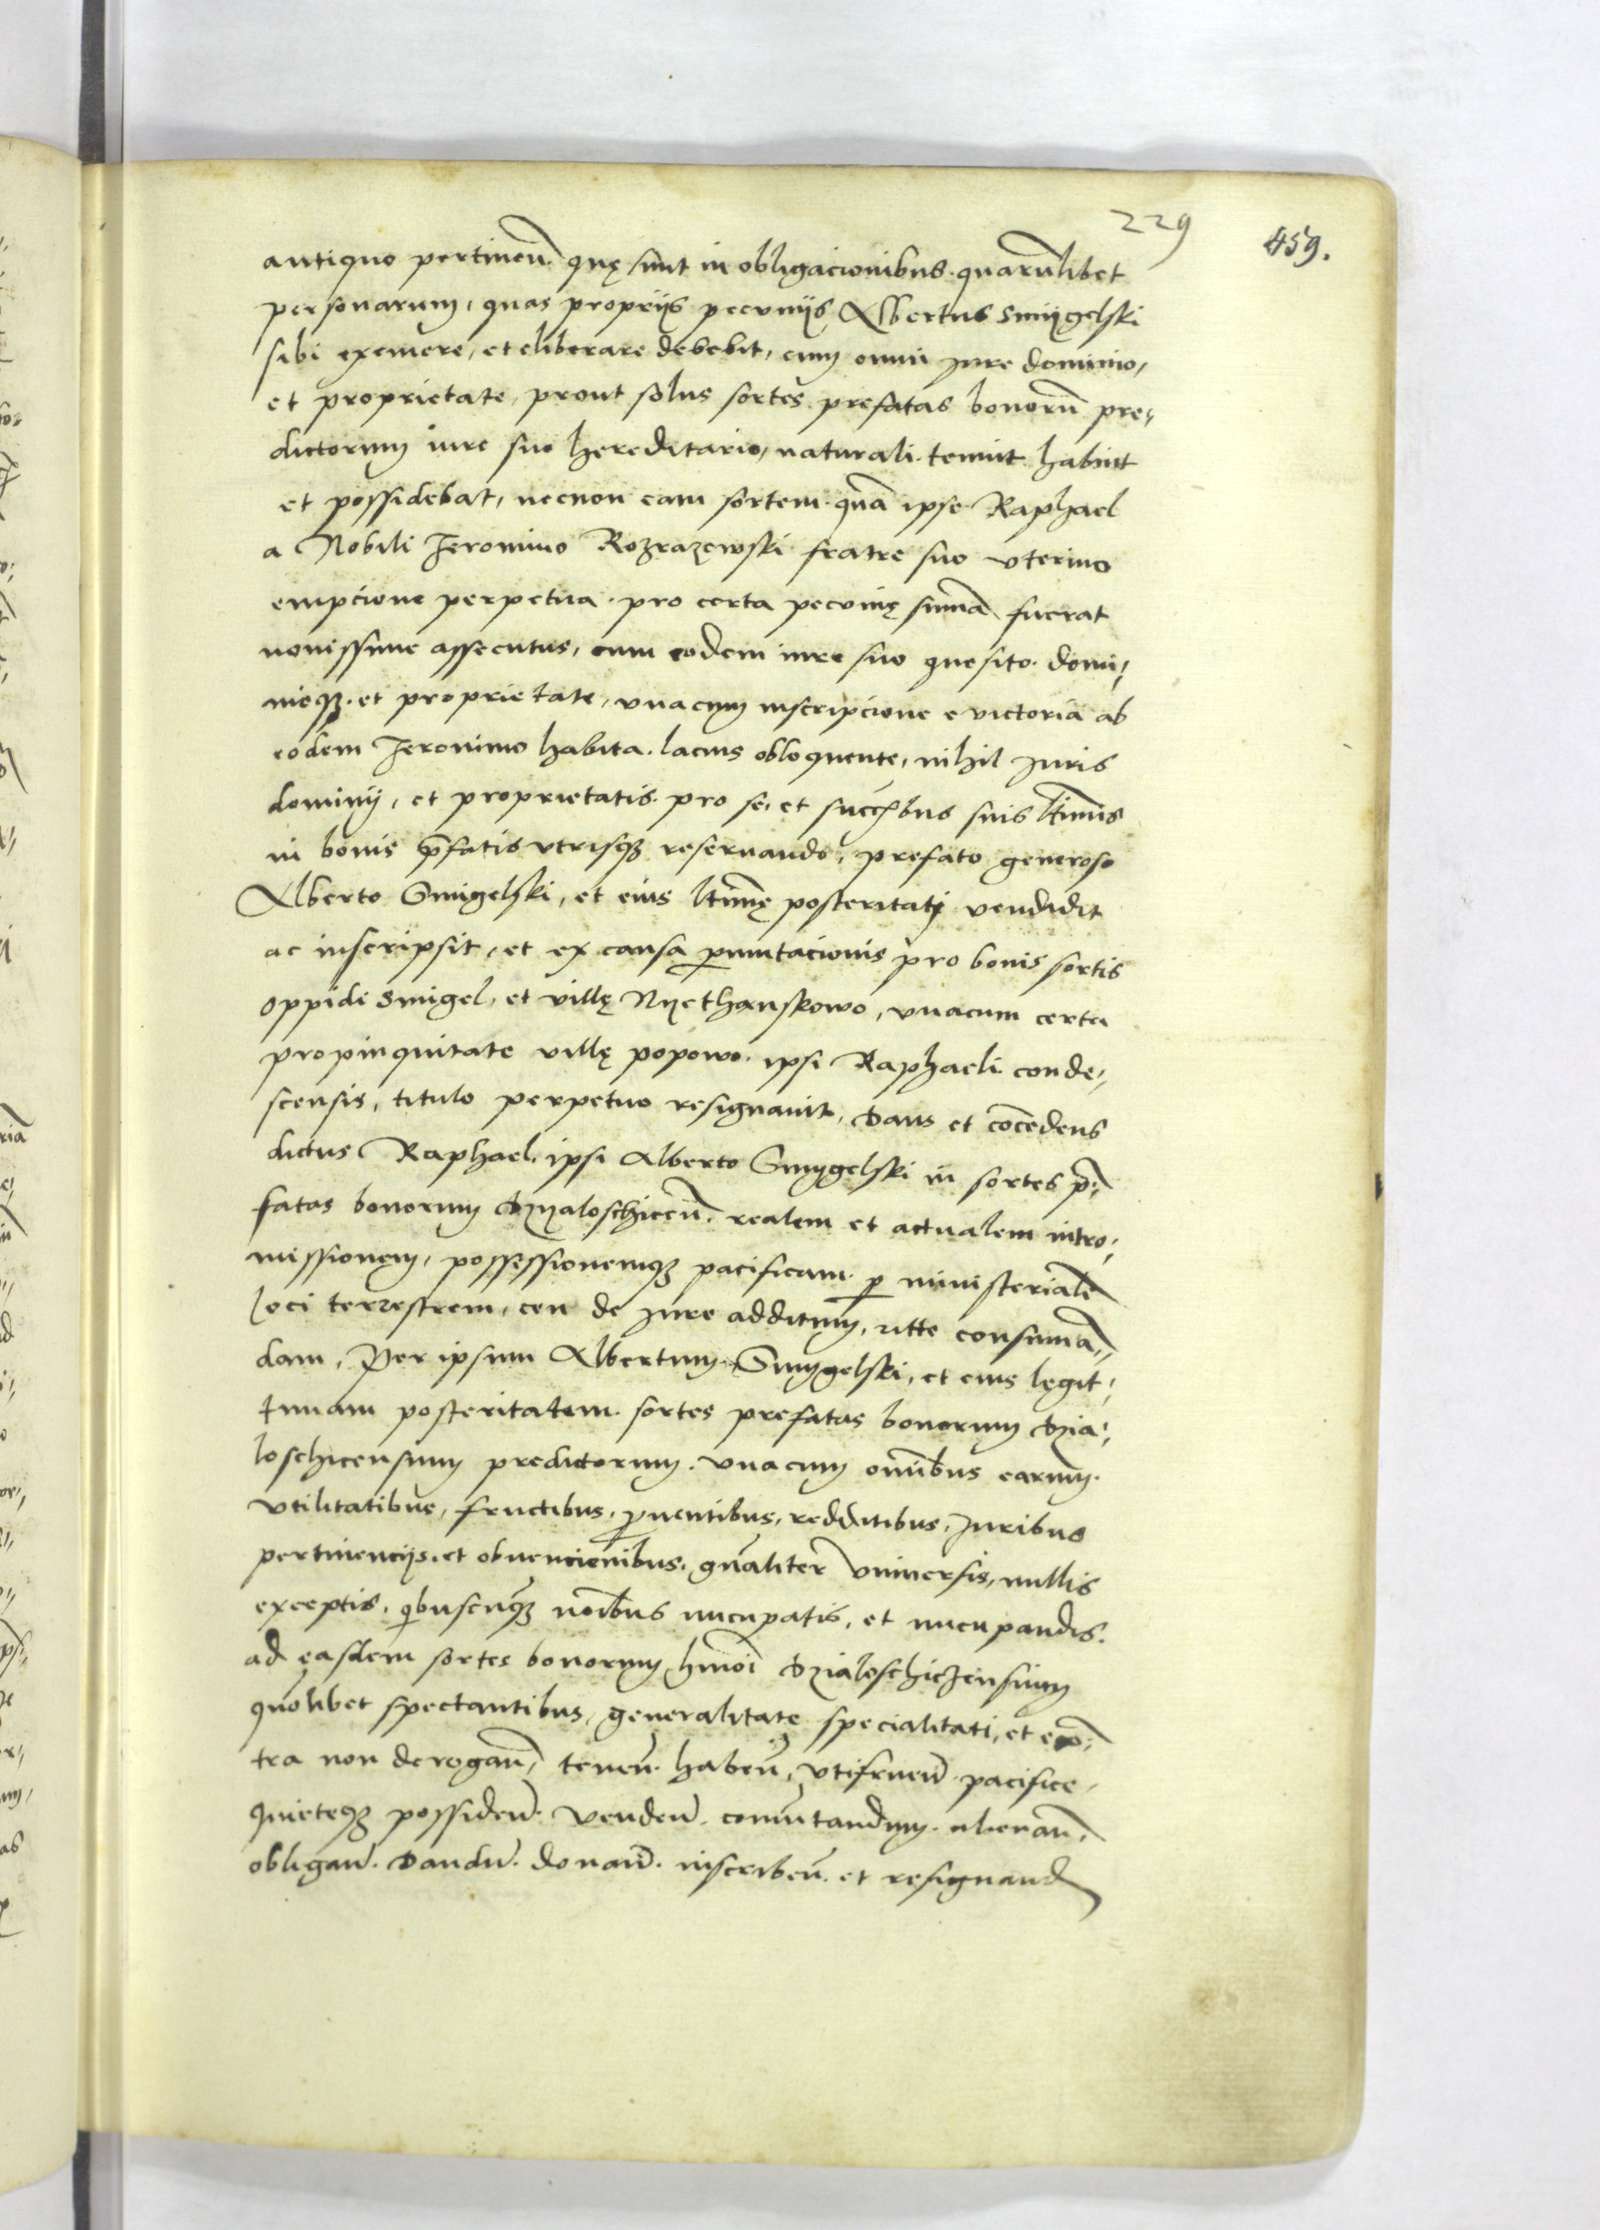 229
459.
antiquo pertineñ. quę sunt in obligacionibus. quarũlibet
personarum, quas proprijs pecunijs Albertus Smygelski
sibi eximere, et eliberare debebit, cum omni Jure dominio,
et proprietate, prout solus sortes prefatas bonorũ pre,,
dictorum iure suo hereditario, naturali tenuit habuit
et possidebat, necnon eam sortem quã ipse Raphael
a Nobili Jeronimo Rozrazewski fratre suo vterino
empcione perpetua. pro certa pecunię sumã fuerat
nouissime assecutus, cum eodem iure suo quesito. domi,,
nioqз. et proprietate, vnacum inscripcione euictoria ab
eodem Jeronimo habita. lacius obloquente, nihil Juris
dominij, et proprietatis. pro se, et succ̃bus suis ltimis
in bonis p̃fatis vtrisqз reseruando, prefato generoso
Alberto Smigelski, et eius ltimę posteritati vendidit
ac inscripsit, et ex causa permutacionis pro bonis sortis
oppidi Smigel, et villę Nyethanskowo, vnacum certa
propinquitate villę popowo. ipsi Raphaeli conde,,
scensis, titulo perpetuo resignauit, Dans et cõcedens
dictus Raphael. ipsi Alberto Smygelski in sortes p̃,,
fatas bonorum Dzyaloschiceñ. realem et actualem intro,,
missionem, possessionemqз pacificam. per ministerialẽ
loci terrestrem, ceu de Jure additum, ritte consumã,,
dam, Per ipsum Albertum Smygelski, et eius legit,,
timam posteritatem. sortes prefatas bonorum Dzia,,
loschicensium predictorum. vnacum om̃ibus earum.
vtilitatibus, fructibus, prouentibus, redditibus, Juribus
pertinencijs. et obuencionibus. gñaliter vniuersis, nullis
exceptis, q̃ibuscũqз noĩbus nũcupatis, et nũcupandis.
ad easdem sortes bonorum hmõi Dzialoschiczensium
quõlibet spectantibus, generalitate specialitati, et ecõ,,
tra non derogañ, teneñ. habeñ, vtifrueñ pacifice,
quieteqз possideñ. vendeñ. comutandum. alienañ,
obligañ. Dandũ. donañ. inscribeñ. et resignand